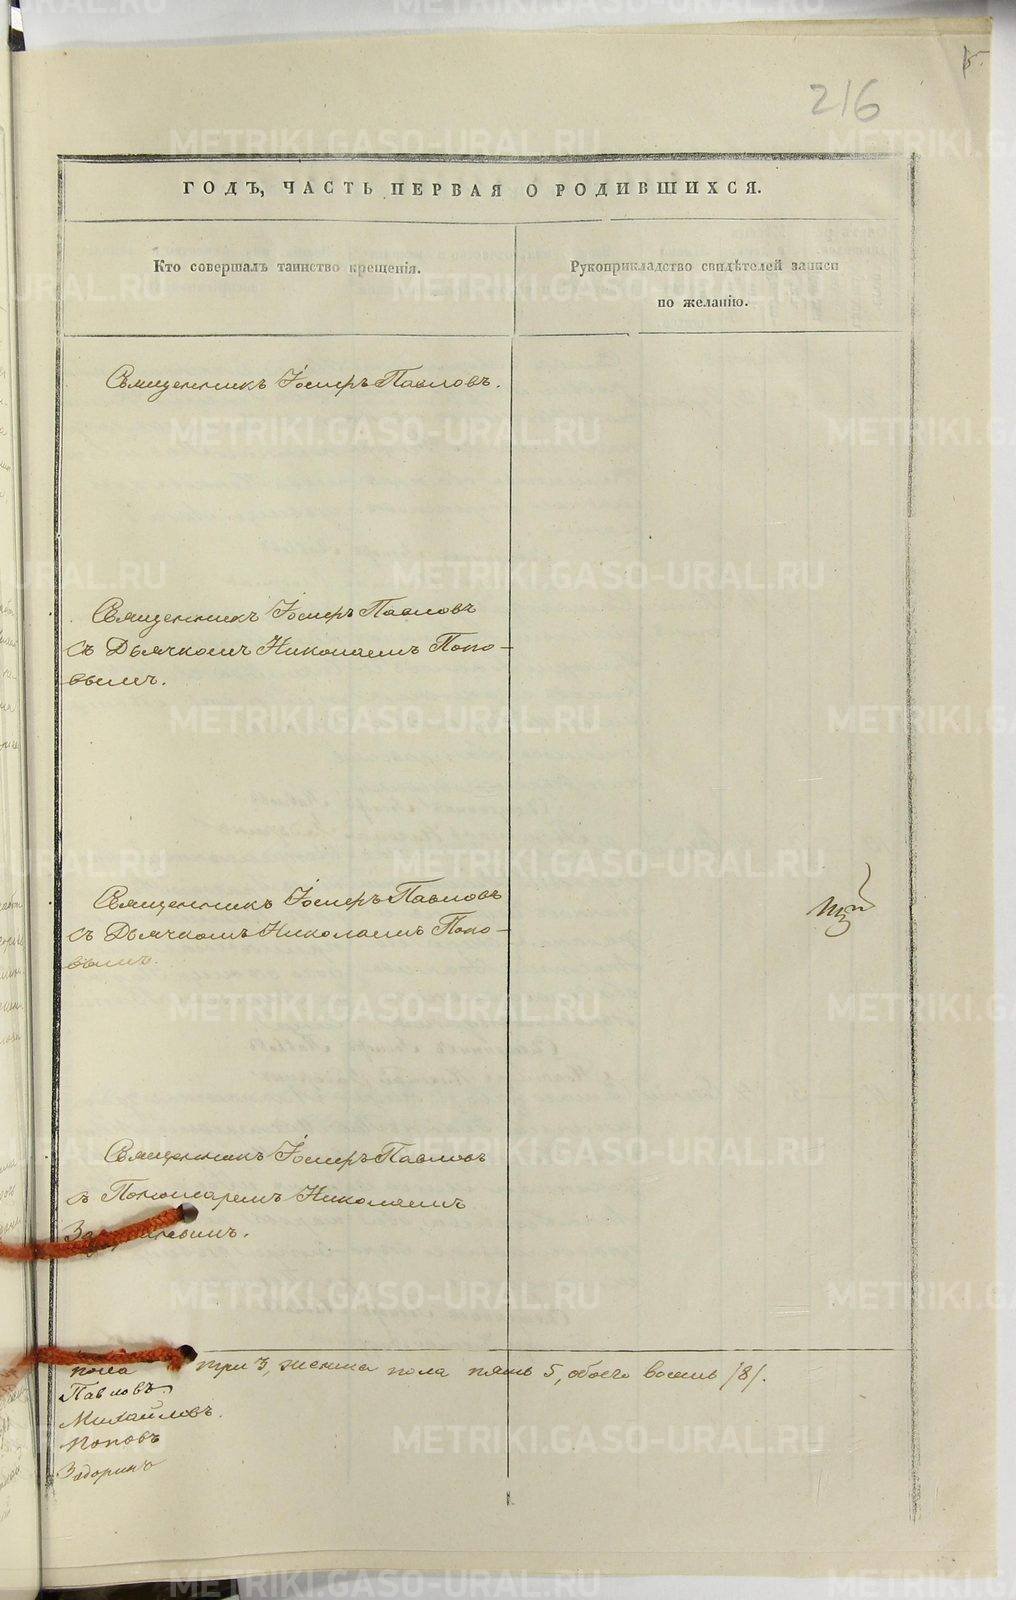 216
ГОДЪ, ЧАСТЬ ПЕРВАЯ О РОДИВШИХСЯ.
Кто совершалъ таинство крещенія.
Рукоприкладство свидѣтелей записи
по желанію.
Священникъ Іосифъ Павловъ.
Священникъ Іосифъ Павловъ
съ Дьячкомъ Николаемъ Попо-
вымъ.
Священникъ Іосифъ Павловъ
съ Дьячкомъ Николаемъ Попо-
вымъ.
Священникъ Іосифъ Павловъ
съ Пономаремъ Николаемъ
Задоринымъ.
пола три 3, женска пола пять 5, обоего восемь /8/.
Павловъ
Михайловъ.
Поповъ
Задоринъ
METRIKI.GASO-URAL.RU